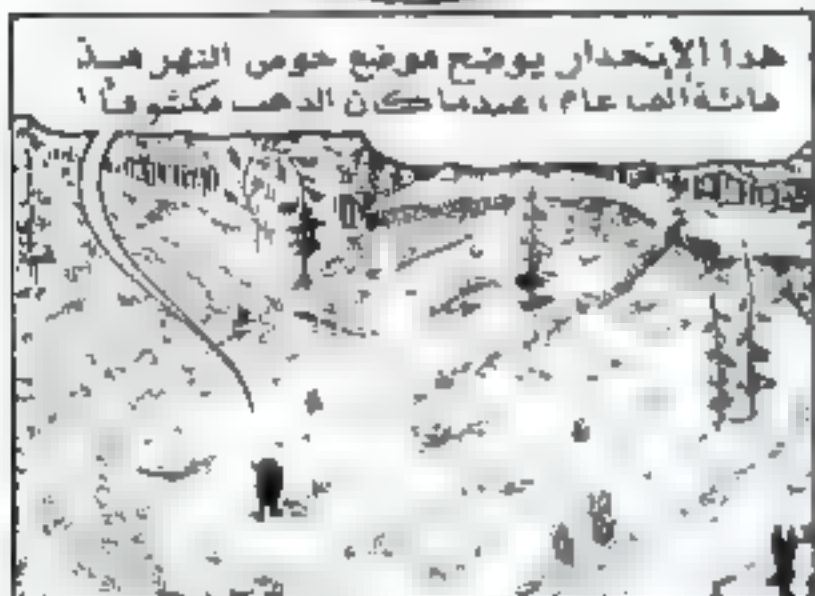 هذا الإنحدار يوضح موضع حوض النهر منذ
مائة ألف عام، عندما كان الذهب مكشوفاً!